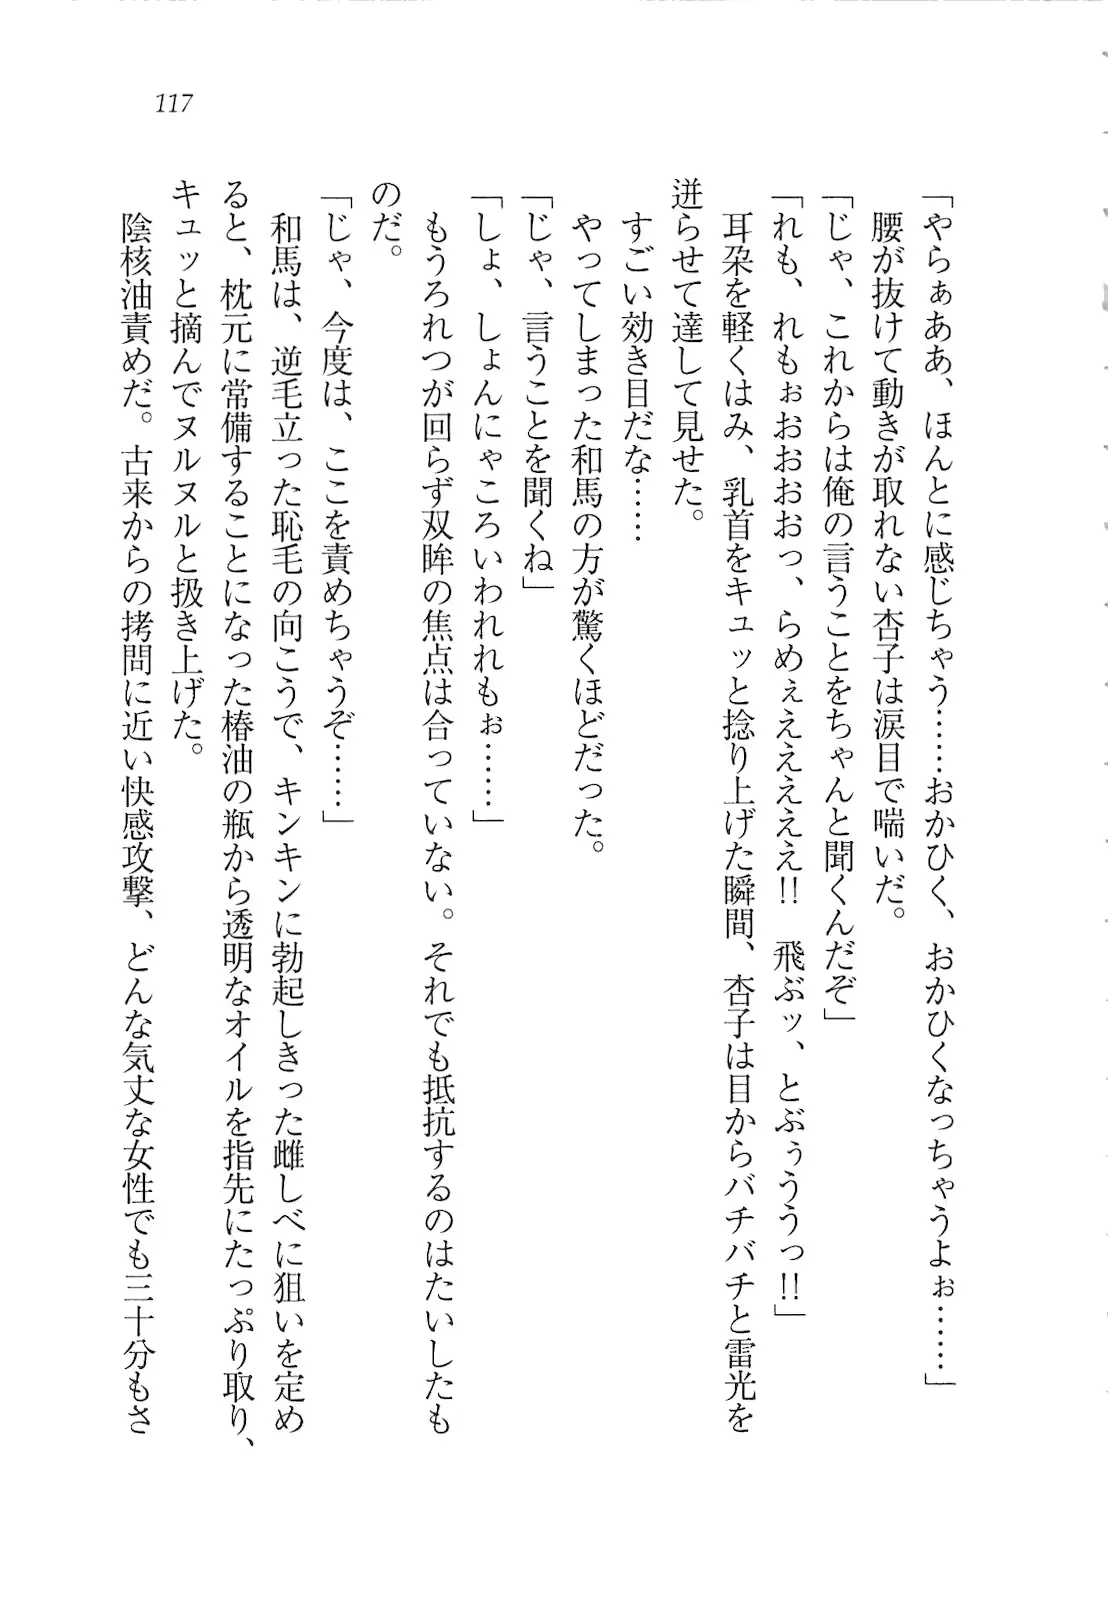 117
「やらぁああ、ほんとに感じちゃう……おかひく、おかひくなっちゃうよぉ……」
腰が抜けて動きが取れない杏子は涙目で喘いだ。
「じゃ、これからは俺の言うことをちゃんと聞くんだぞ」
「れも、れもぉおおおおっ、らめぇええええええ!!　飛ぶッ、とぶぅううっ!!」
耳朶を軽くはみ、乳首をキュッと捻り上げた瞬間、杏子は目からバチバチと雷光を
迸らせて達して見せた。
すごい効き目だな……
やってしまった和馬の方が驚くほどだった。
「じゃ、言うことを聞くね」
「しょ、しょんにゃころいわれれもぉ……」
もうろれつが回らず双眸の焦点は合っていない。それでも抵抗するのはたいしたも
のだ。
「じゃ、今度は、ここを責めちゃうぞ……」
和馬は、逆毛立った恥毛の向こうで、キンキンに勃起しきった雌しべに狙いを定め
ると、枕元に常備することになった椿油の瓶から透明なオイルを指先にたっぷり取り、
キュッと摘んでヌルヌルと扱き上げた。
陰核油責めだ。古来からの拷問に近い快感攻撃、どんな気丈な女性でも三十分もさ